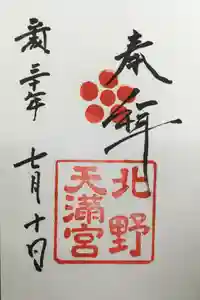 奉拝
北野
天満宮
平成三十年
七月十日